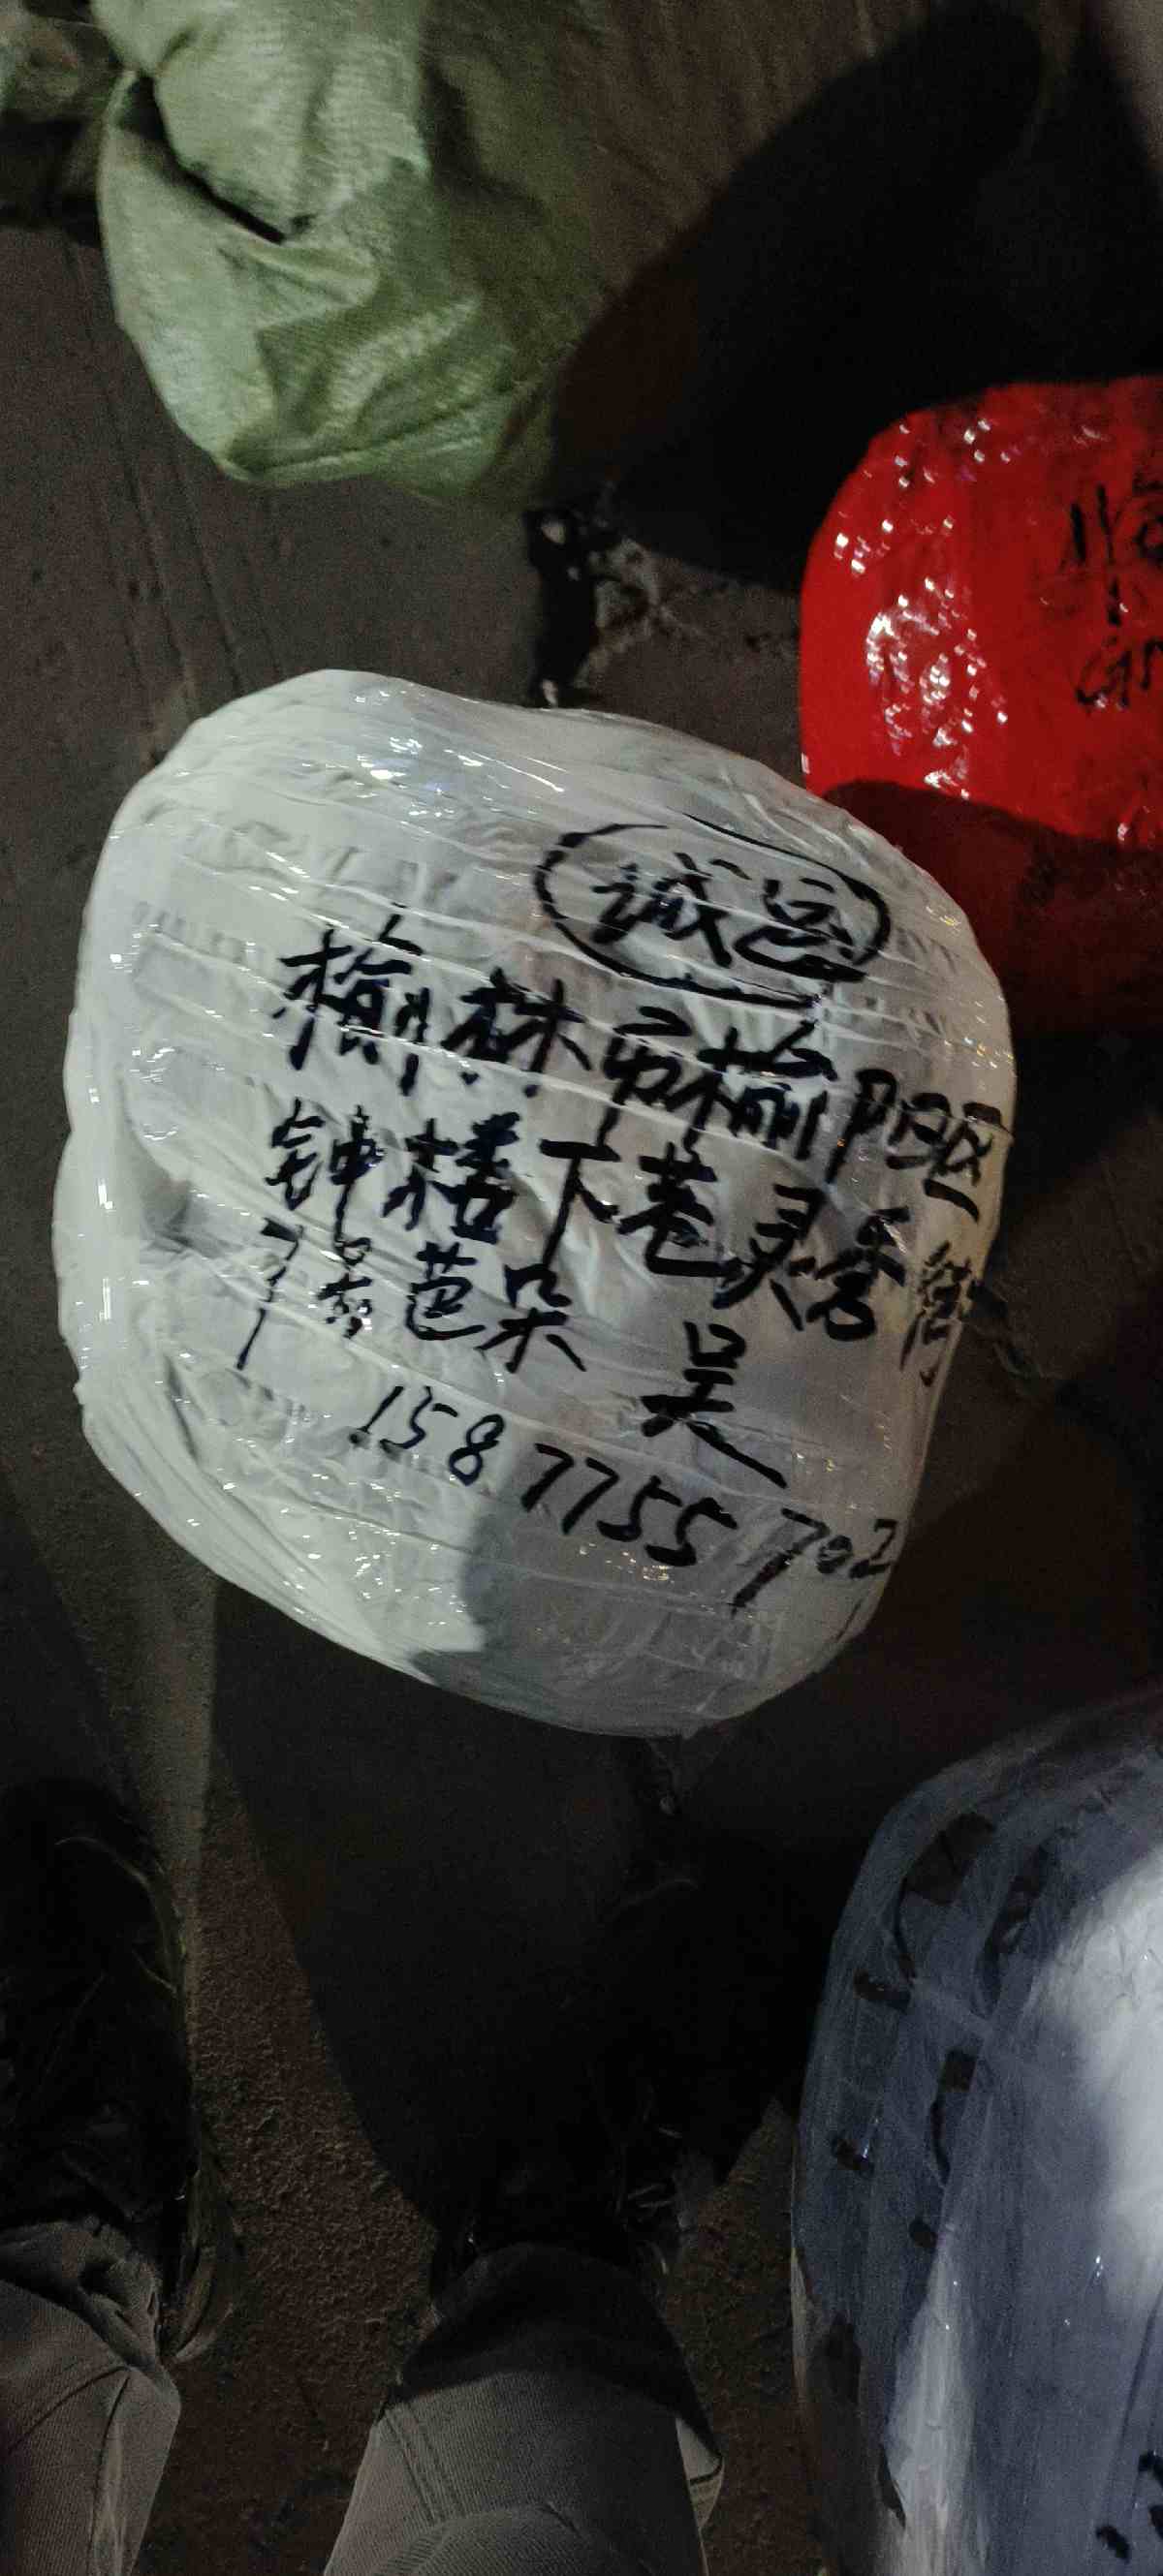 诚运
榆林市榆阳区
钟楼下巷灵秀街
7号芭朵 吴
158 7755 702